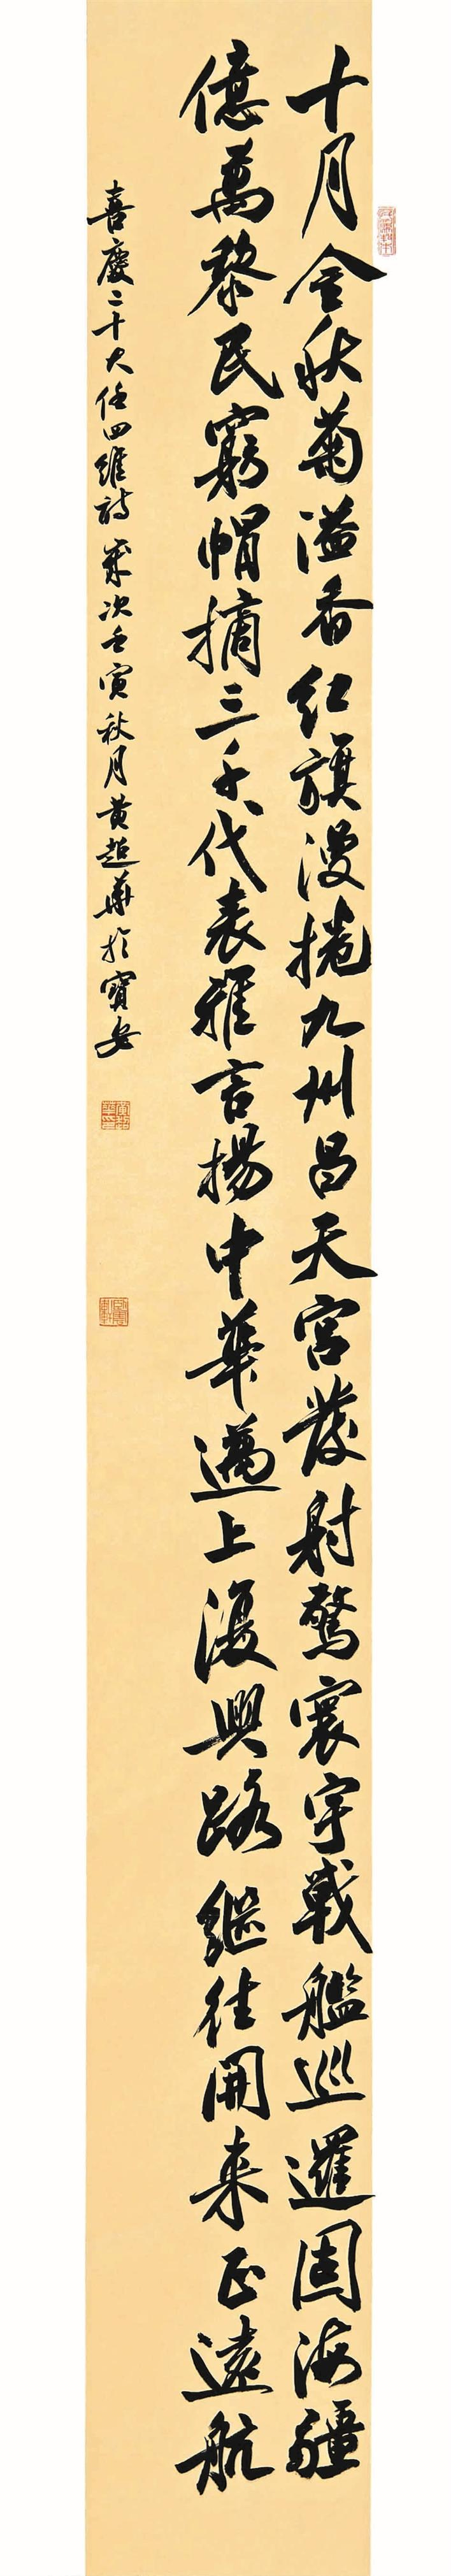 十月金秋菊溢香红旗漫捲九州昌天宫發射驚寰宇戰艦巡邏固海疆
億萬黎民窮帽摘三千代表雅言揚中華邁上復興路繼往開来正遠航
喜慶二十大任四維詩歲次壬寅秋月黄超華於寶安